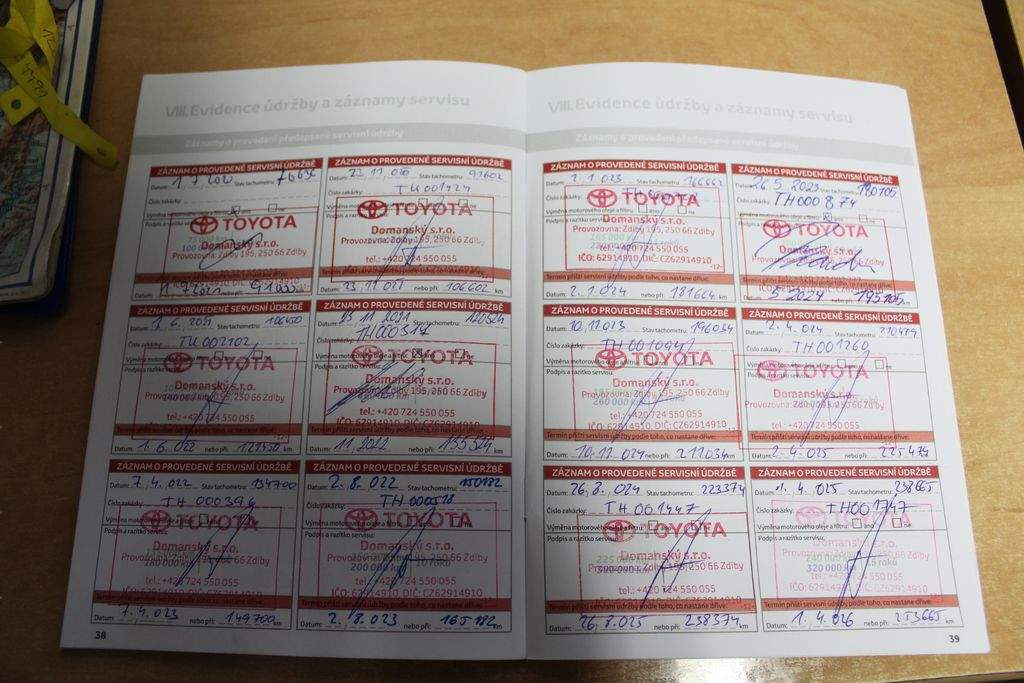 VIII. Evidence údržby a záznamy servisu
Záznamy o provedení předepsané servisní údržby
ZÁZNAM O PROVEDENÉ SERVISNÍ ÚDRŽBĚ
Datum: 1 7 2020 Stav tachometru:
Číslo zakázky:
Výměna motorového oleje a filtru: ano ne
Podpis a razítko servisu:
TOYOTA
Domanský s.r.o.
Provozovna: Zdiby 195, 250 66 Zdiby
Termín příští servisní údržby podle toho, co nastane dříve:
Datum: 1 7 2021 nebo při: km
ZÁZNAM O PROVEDENÉ SERVISNÍ ÚDRŽBĚ
Datum: Stav tachometru: 91602
TH001424
TOYOTA
Domanský s.r.o.
Provozovna: Zdiby 195, 250 66 Zdib
tel.: +420 724 550 055
Termín příští servisní údržby podle toho, co nastane dříve:
Datum: 23, 11, 021 nebo při: 106602 km
ZÁZNAM O PROVEDENÉ SERVISNÍ ÚDRŽBĚ
Datum: 1. 6. 2021 Stav tachometru: 106450
Číslo zakázky: TH 002102
Výměna motorového
Podpis a razítko servisu:
TOYOTA
Domanský s.r.o.
Provozovna: Zdiby 195, 250 66 Zdiby
tel.: +420 724 550 055
IČO: 62914910, DIČ: CZ62914910
Datum: 1. 6. 022 nebo při: km
ZÁZNAM O PROVEDENÉ SERVISNÍ ÚDRŽBĚ
Datum: 23 11 2021 Stav tachometru:
Číslo zakázky:
Podpis a razítko servisu:
TOYOTA
Domanský s.r.o.
Provozovna: Zdiby 195, 250 66 Zdiby
tel.: +420 724 550 055
IČO: 62914910, DIČ: CZ62914910
Datum: 11. 2022 nebo při: km
ZÁZNAM O PROVEDENÉ SERVISNÍ ÚDRŽBĚ
Datum: 7. 4. 022 Stav tachometru: 134700
Číslo zakázky: TH 000394
Výměna motorového oleje
Podpis a razítko servisu:
TOYOTA
Domanský s.r.o.
Provozovna: Zdiby 195, 250 66 Zdiby
180 000 km
tel.: +420 724 550 055
IČO: 62914910, DIČ: CZ62914910
Datum: 7. 4. 023 nebo při: 149700 km
ZÁZNAM O PROVEDENÉ SERVISNÍ ÚDRŽBĚ
Datum: 2. 8. 022 Stav tachometru:
Číslo zakázky:
Podpis a razítko servisu:
TOYOTA
Domanský s.r.o.
Provozovna: Zdiby 195, 250 66 Zdiby
200 000 km
tel.: +420 724 550 055
IČO: 62914910, DIČ: CZ62914910
Datum: 2. 8. 023 nebo při: 165182 km
38
VIII. Evidence údržby a záznamy servisu
Záznamy o provedení předepsané servisní údržby
ZÁZNAM O PROVEDENÉ SERVISNÍ ÚDRŽBĚ
Datum: 2. 1. 023 Stav tachometru: 166662
Číslo zakázky:
Výměna motorového oleje a filtru: ano ne
Podpis a razítko servisu:
TOYOTA
Domanský s.r.o.
Provozovna: Zdiby 195, 250 66 Zdiby
tel.: +420 724 550 055
IČO: 62914910, DIČ: CZ62914910
-12-
Termín příští servisní údržby podle toho, co nastane dříve:
Datum: 2. 1. 024 nebo při: 181664 km
ZÁZNAM O PROVEDENÉ SERVISNÍ ÚDRŽBĚ
Datum: 26 5 2023 Stav tachometru: 180105
Číslo zakázky: TH000874
Výměna motorového oleje a filtru: ano ne
Podpis a razítko servisu:
TOYOTA
Domanský s.r.o.
IČO: 62914910, DIČ: CZ62914910
Termín příští servisní údržby podle toho, co nastane dříve:
Datum: 5 2024 nebo při: 195105 km
ZÁZNAM O PROVEDENÉ SERVISNÍ ÚDRŽBĚ
Datum: 10, 11 023 Stav tachometru: 196034
Číslo zakázky:
Výměna motorového oleje a filtru:
Podpis a razítko servisu:
TOYOTA
Domanský s.r.o.
Provozovna: Zdiby 195, 250 66 Zdiby
260 000 km
tel.: +420 724 550 055
IČO: 62914910, DIČ: CZ62914910
Termín příští servisní údržby podle toho, co nastane dříve:
Datum: 10, 11, 024 nebo při: 211034 km
ZÁZNAM O PROVEDENÉ SERVISNÍ ÚDRŽBĚ
Datum: 2. 4. 024 Stav tachometru: 210479
Číslo zakázky: TH 001260
Výměna motorového oleje a filtru: ne
Podpis a razítko servisu:
TOYOTA
Domanský s.r.o.
tel.: +420 724 550 055
IČO: 62914910, DIČ: CZ62914910
Termín příští servisní údržby podle toho, co nastane dříve:
Datum: 2. 4. 025 nebo při: 225479 km
ZÁZNAM O PROVEDENÉ SERVISNÍ ÚDRŽBĚ
Datum: 26, 8, 024 Stav tachometru: 223374
Číslo zakázky: TH 001447
Výměna motorového oleje a filtru:
Podpis a razítko servisu:
TOYOTA
Domanský s.r.o.
Provozovna: Zdiby 195, 250 66 Zdiby
tel.: +420 724 550 055
IČO: 62914910, DIČ: CZ62914910
Termín příští servisní údržby podle toho, co nastane dříve:
Datum: 26, 8. 025 nebo při: 238374 km
ZÁZNAM O PROVEDENÉ SERVISNÍ ÚDRŽBĚ
Datum: 1. 4. 025 Stav tachometru: 238665
Číslo zakázky: TH001747
Výměna motorového oleje a filtru: ano ne
Podpis a razítko servisu:
TOYOTA
Domanský s.r.o.
Provozovna: Zdiby 195, 250 66 Zdiby
320 000 km
tel.: +420 724 550 055
IČO: 62914910, DIČ: CZ62914910
Termín příští servisní údržby podle toho, co nastane dříve:
Datum: 1. 4. 026 nebo při: 253665 km
39